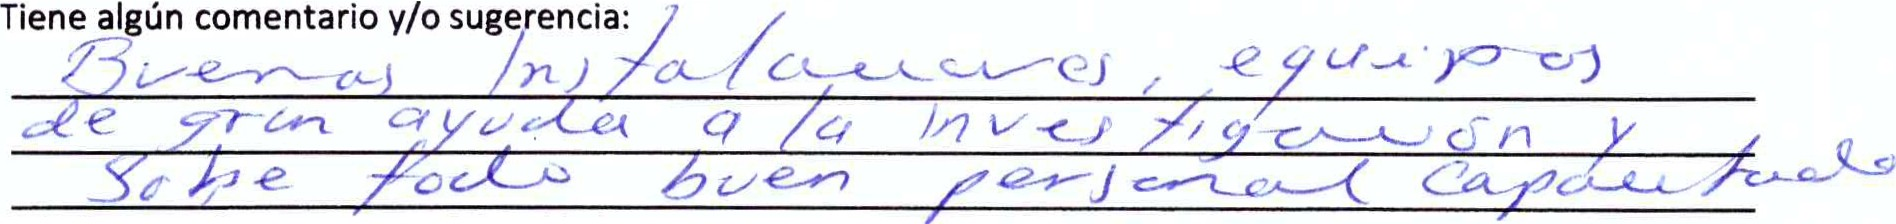 Tiene algún comentario y/o sugerencia:
Buenas Instalaciones, equipos
de gran ayuda a la investigación y
Sobre todo buen personal Capacitado